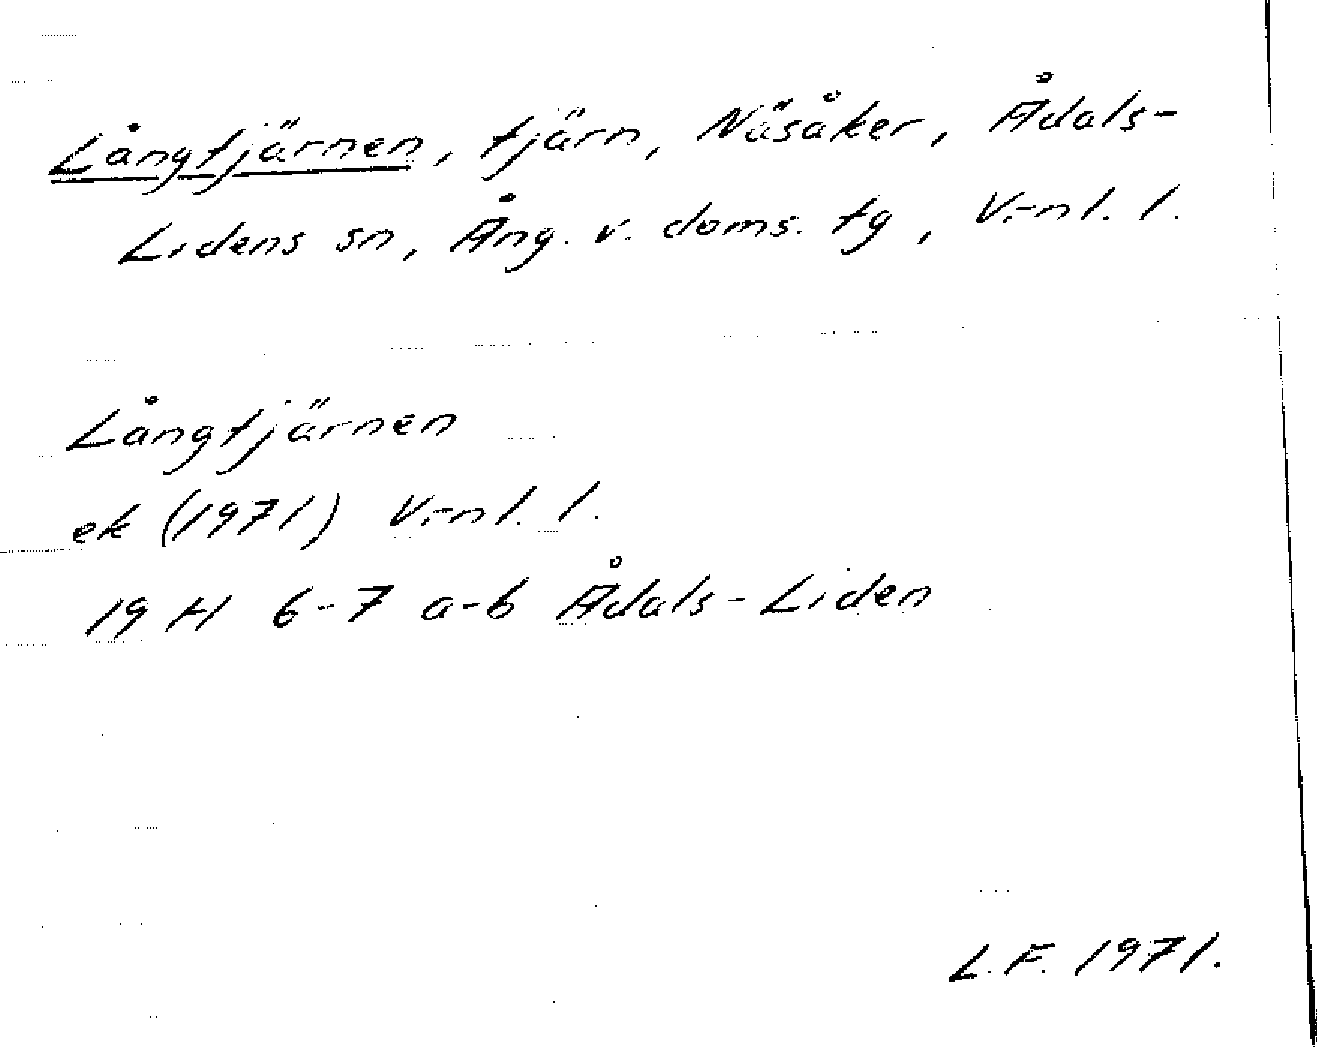 Långtjärnen, tjärn, Näsåker, Ådals-
Lidens sn, Ång. v. doms. tg, V.-nl. l.
Långtjärnen
ek (1971) V.-nl. l.
19 H 6-7 a-b Ådals-Liden
L.F. 1971.